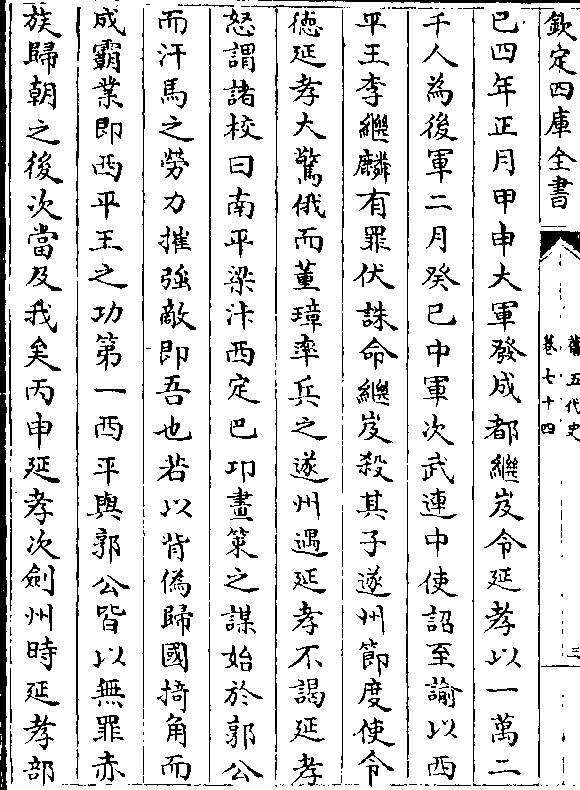 欽定四庫全書
舊五代史
卷七十四
三
已四年正月甲申大軍發成都繼岌令延孝以一萬二
千人為後軍二月癸巳中軍次武連中使詔至諭以西
平王李繼麟有罪伏誅命繼岌殺其子遂州節度使令
德延孝大驚俄而董璋率兵之遂州遇延孝不謁延孝
怒謂諸校曰南平梁汴西定巴卭畫䇿之謀始於郭公
而汗馬之勞力摧強敵即吾也若以背偽歸國掎角而
成霸業即西平王之功第一西平與郭公皆以無罪赤
族歸朝之後次當及我矣丙申延孝次劍州時延孝部